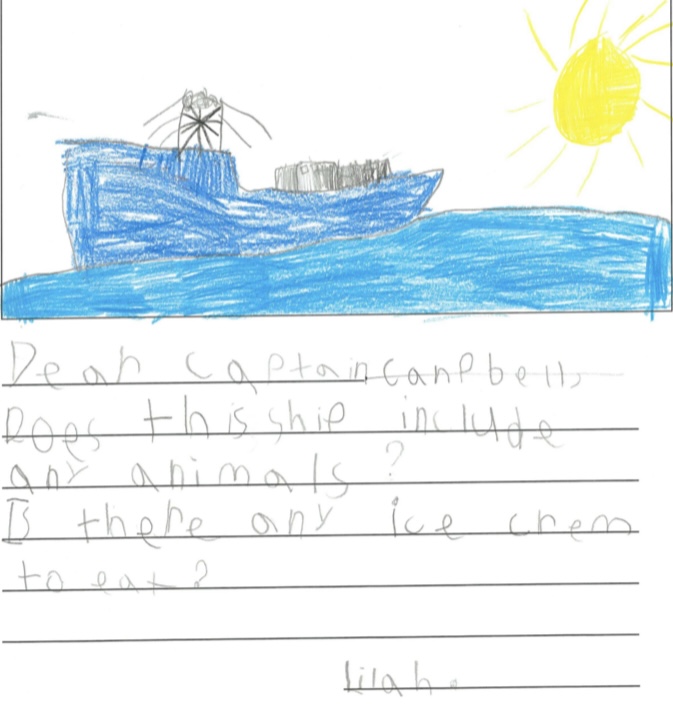 Dear captain canpbell,
Does this ship include
any animals?
Is there any ice crem
to eat?
Lilah.